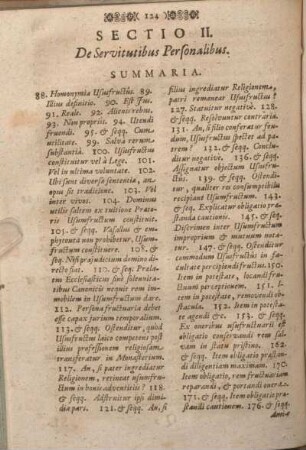 124
SECTIO II.
De Servitutibus Personalibus.
SUMMARIA.
88. Homonymia Ususfructûs. 89.
Illius definitio. 90. Est Jus.
91. Reale. 92. Alienis rebus.
93. Non propriis. 94. Utendi
fruendi. 95. & seqq. Cum
utilitate. 99. Salva rerum
substantiâ. 100. Usumfructum
constituitur vel à Lege. 101.
Vel in ultima voluntate. 102.
Ubi sunt diversæ sententiæ, an
opus sit traditione. 103. Vel
inter vivos. 104. Dominus
utilis saltem ex rutione Præto-
ris Usumfructum constituit.
105. & seqq. Vasallus &
emphyteuta non prohibetur, Usum-
fructum constituere. 108. &
seq. Nisi præjudicium domino di-
recto fiat. 110. & seq. Præla-
tus Ecclesiasticus sub solennita-
tibus Canonicis nequit rem im-
mobilem in Usumfructum dare.
112. Persona fructuaria debet
esse capax rerum temporalium.
113. & seqq. Ostenditur, quòd
Ususfructus laico competens post
illius professionem religiosam,
transferatur in Monasterium.
117. An, si pater ingrediatur
Religionem, retineat usumfru-
ctum in bonis adventitiis? 118.
& seqq. Adstruitur ipsi dimi-
dia pars. 121. & seqq. An, si
filius ingrediatur Religionem,
patri remaneat Ususfructus?
127. Statuitur negativè. 128.
& seqq. Resolvuntur contraria.
131. An, si filio conferatur feu-
dum, Ususfructus spectet ad pa-
trem? 132. & seqq. Conclu-
ditur negativè. 136. & seqq.
Assignatur objectum Ususfru-
ctus. 139. & seqq. Ostendi-
tur, qualiter res consumptibilis
recipiant Usumfructum. 143.
& seqq. Explicatur obligatio præ-
standa cautionis. 145. & seq.
Discrimen inter Usumfructum
improprium & mutuum nota-
tur. 147. & seqq. Ostenditur
commodum Ususfructûs in fa-
cultate percipiendi fructus. 150.
Item in potestate, locandi fru-
ctuum perceptionem. 151. &
seqq. Item in remittendi ob-
staculo. 152. Item in potestate
agendi. 153. & seqq.
Ex oneribus usufructuarii est
obligatio conservandi rem sal-
vam in statu pristino. 161.
& seqq. Item obligatio præstan-
di diligentiam maximam. 170.
& seqq. Item, rem fructuariam
reparandi, & portandi onera.
171. & seqq. Item obligatio præ-
standi cautionem. 176. & seqq.